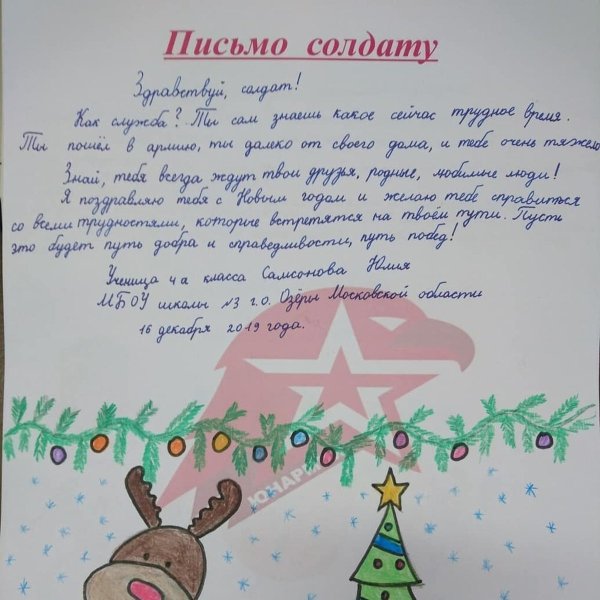 Письмо солдату
Здравствуй, солдат!
Как служба? Ты сам знаешь какое сейчас трудное время.
Ты пошёл в армию, ты далеко от своего дома, и тебе очень тяжело
Знай, тебя всегда ждут твои друзья, родные, любимые люди!
Я поздравляю тебя с Новым годом и желаю тебе справиться
со всеми трудностями, которые встретятся на твоём пути. Пусть
это будет путь добра и справедливости, путь побед!
Ученица 4а класса Самсонова Юлия
МБОУ школы №3 г.о. Озёры Московской области
16 декабря 2019 года.